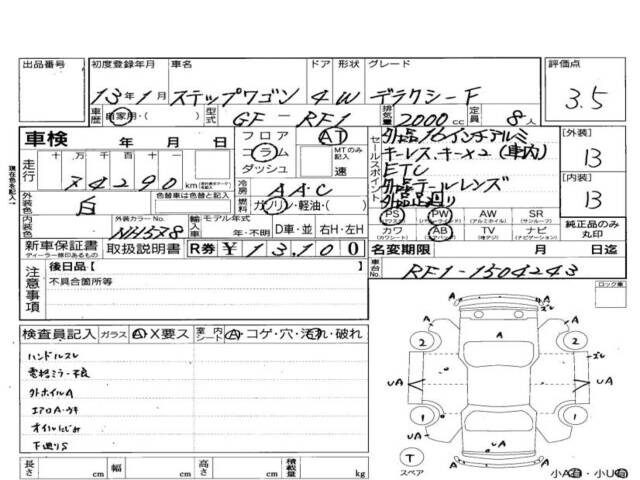 出品番号 初度登録年月 車名 ドア 形状 グレード 評価点
13年1月 ステップワゴン 4 W デラクシーF 3.5
車歴 自家用・( ) 型式 GF－RF1 排気量 2000cc 定員 8人
車検 年 月 日
フロア AT
コラム MTのみ記入
ダッシュ 速
走行 十万 万 千 百 十 一
74290 km
冷房 AAC
燃料 ガソリン・軽油・( )
セールスポイント
外品16インチアルミ
キーレス、キー×2(車内)
ETC
外品テールレンズ
[外装] 13
[内装] 13
純正品のみ丸印
現在色を記入
外装色 白 色替車は色替と記入
内装色 外装カラーNo. NH578
輸入車 モデル年式 年・不明 D車・並 右H・左H
PS (パワステ) PW AW (アルミホイル) SR (サンルーフ)
カワ (カワシート) AB TV (地デジ) ナビ (ナビゲーション)
新車保証書 取扱説明書 R券 ¥13,100
ディーラー捺印あるもの
名変期限 月 日迄
車台No. RF1-1504243
注意事項
後日品【 】
不具合箇所等
ロック車
検査員記入 ガラス A・X要ス 室内シート A・コゲ・穴・汚れ・破れ
ハンドルスレ
電格ミラー不良
外ホイルA
エアロA・ウキ
オイルにじみ
下廻りS
A A
2 A 2 ズレ
UA UA
1 1 ズレ
A UA A
T スペア
小A有・小U有
長さ cm 幅 cm 高さ cm 積載量 kg